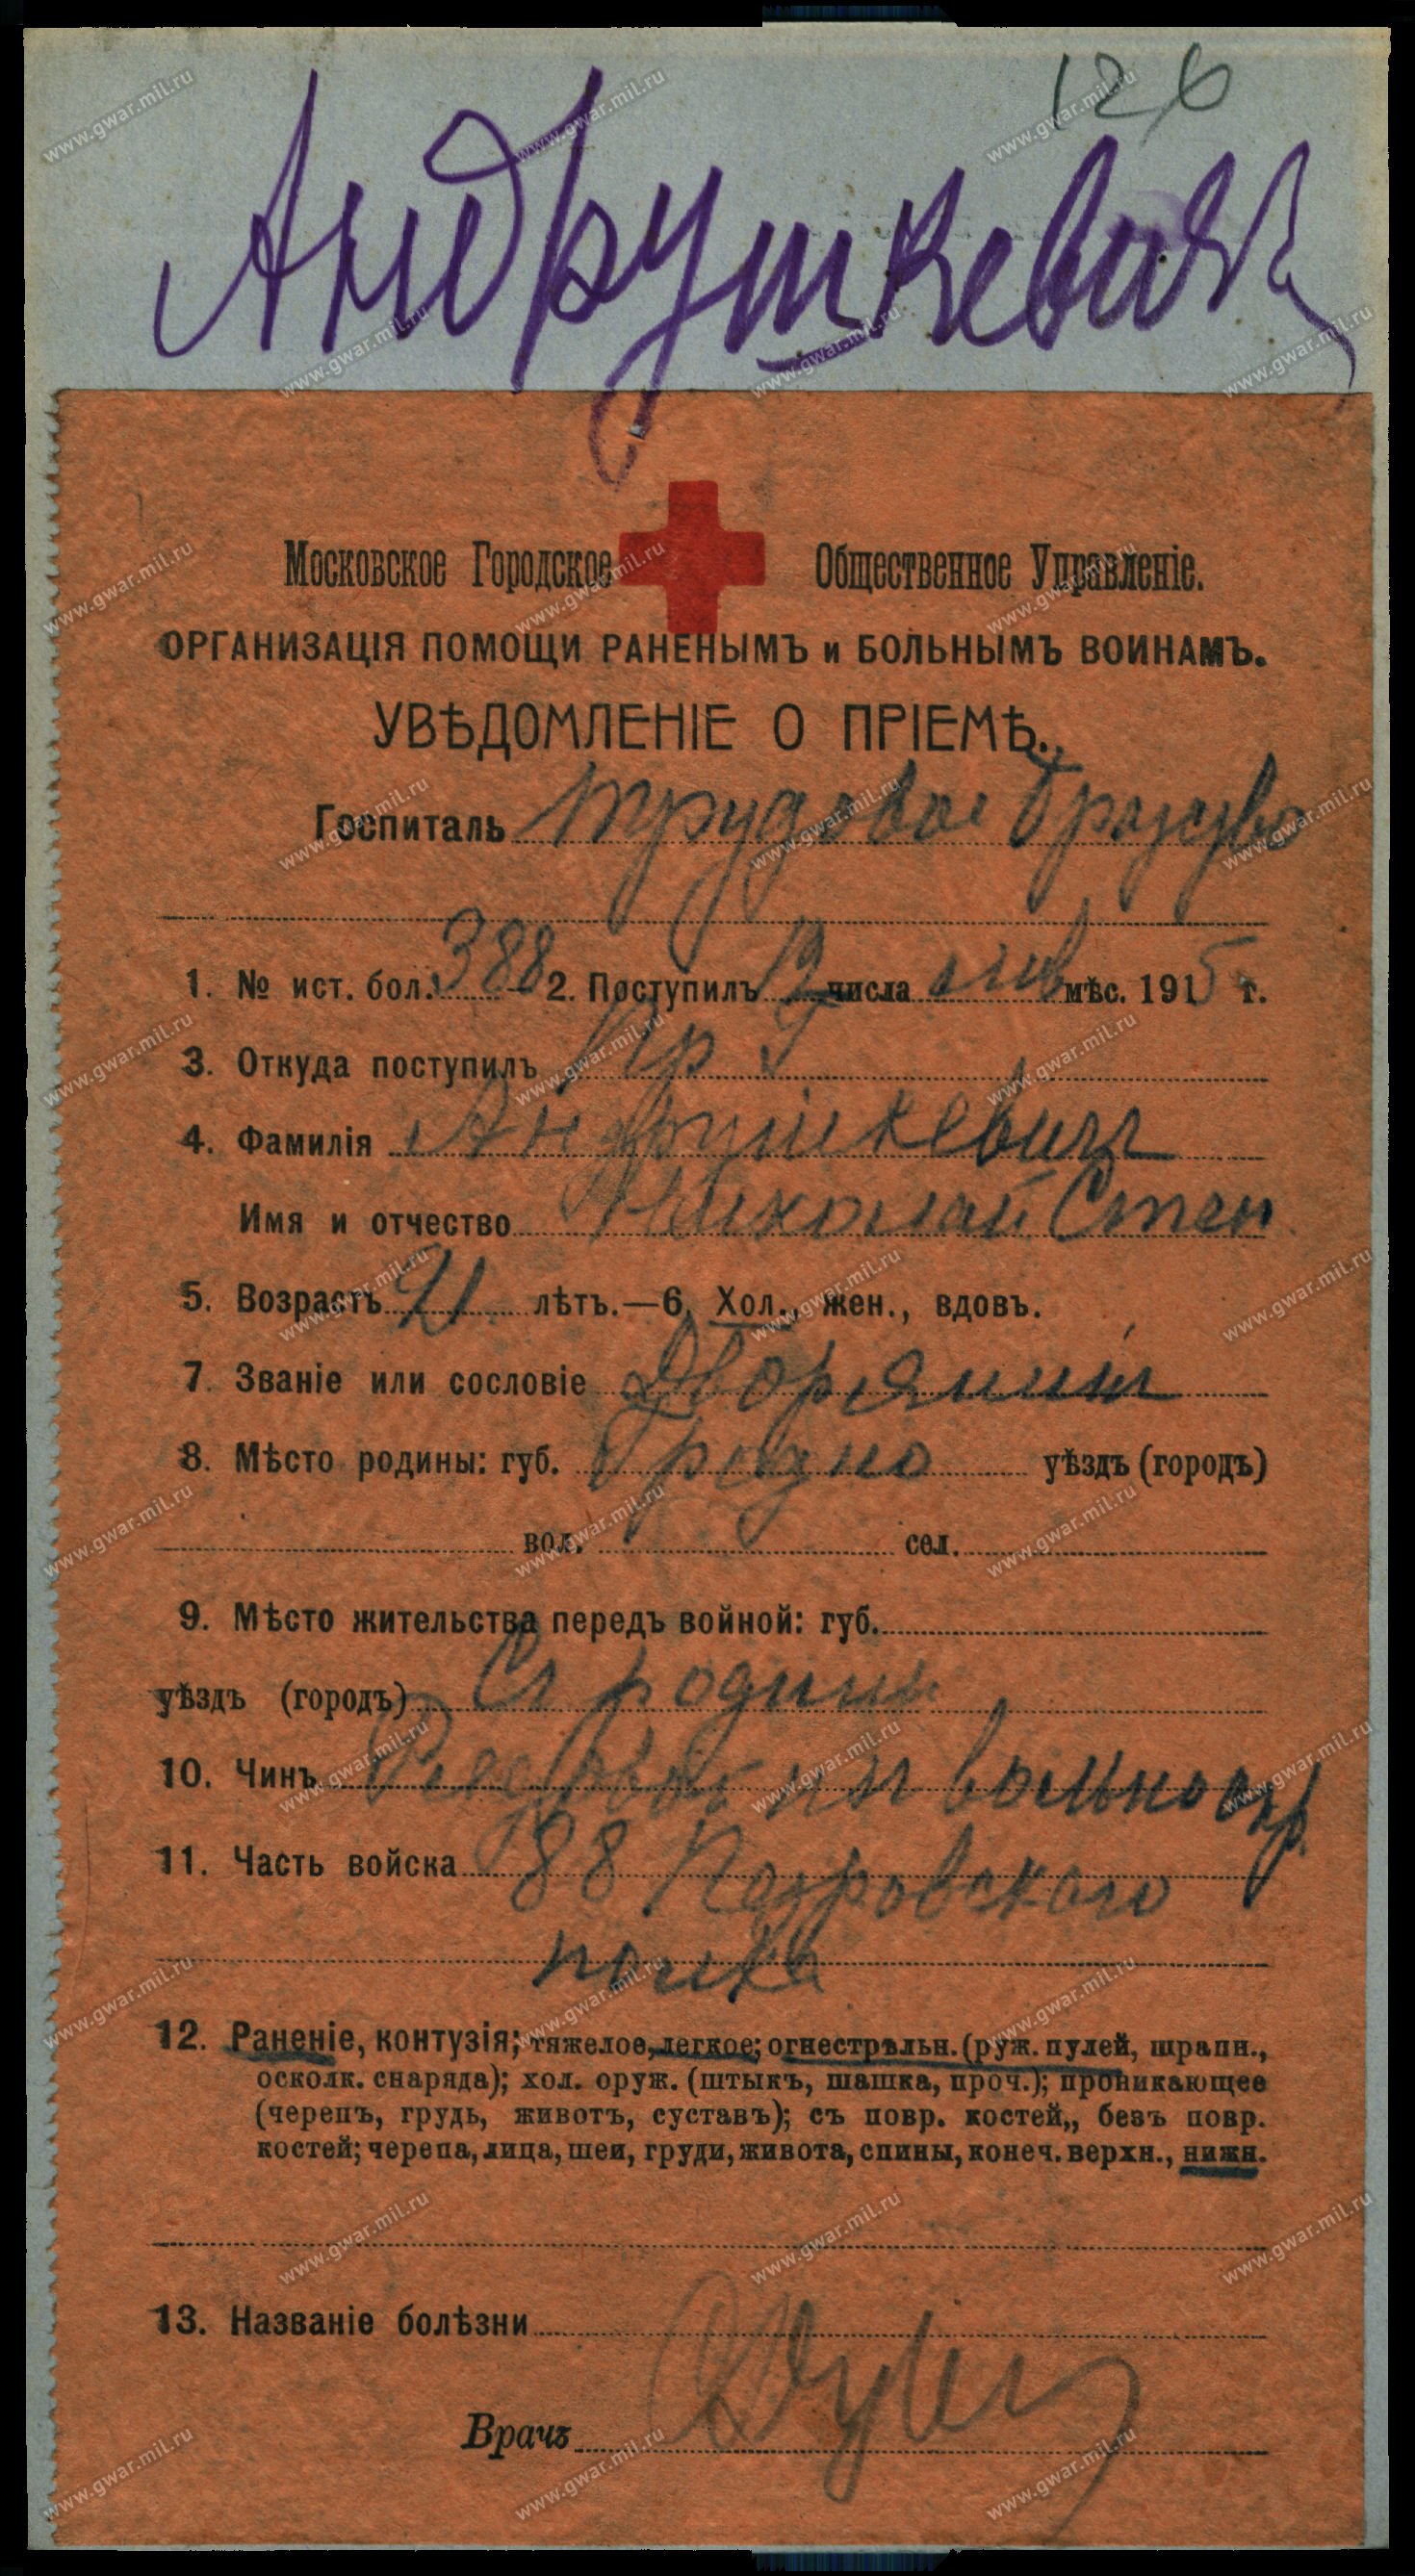 126
Андрушкевичъ
Московское Городское Общественное Управленіе.
ОРГАНИЗАЦІЯ ПОМОЩИ РАНЕНЫМЪ и БОЛЬНЫМЪ ВОИНАМЪ.
УВѢДОМЛЕНІЕ О ПРІЕМѢ.
Госпиталь Трудовое Братство
1. № ист. бол. 388 – 2. Поступилъ 12 числа янв мѣс. 1915 г.
3. Откуда поступилъ
4. Фамилія Андрушкевичъ
Имя и отчество Николай Степ
5. Возрастъ 21 лѣтъ.—6. Хол., жен., вдовъ.
7. Званіе или сословіе Дворянинъ
8. Мѣсто родины: губ. Гродно уѣздъ (городъ)
вол. сел.
9. Мѣсто жительства передъ войной: губ.
уѣздъ (городъ) Съ родины
10. Чинъ Рядовой изъ вольноопр.
11. Часть войска 88 Петровскаго
полка
12. Раненіе, контузія; тяжелое, легкое; огнестрѣльн. (руж. пулей, шрапн.,
осколк. снаряда); хол. оруж. (штыкъ, шашка, проч.); проникающее
(черепъ, грудь, животъ, суставъ); съ повр. костей,, безъ повр.
костей; черепа, лица, шеи, груди, живота, спины, конеч. верхн., нижн.
13. Названіе болѣзни
Врачъ
www.gwar.mil.ru